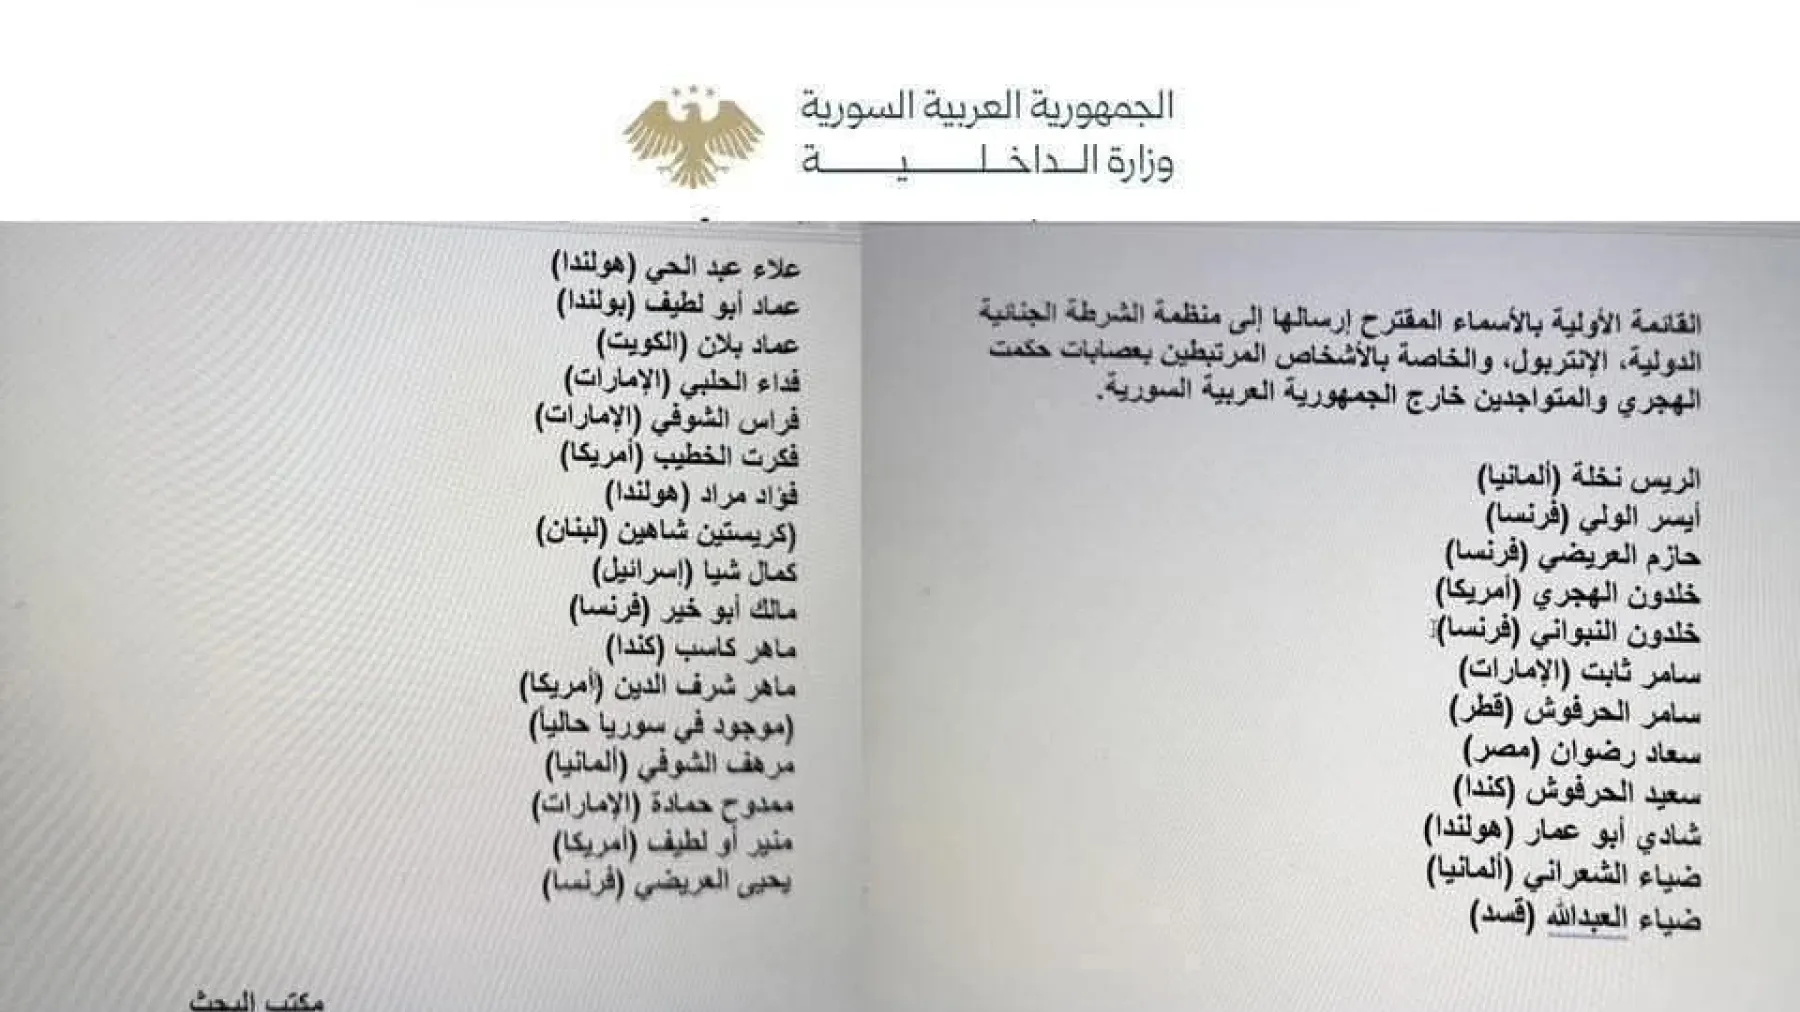 الجمهورية العربية السورية
وزارة الداخلية
القائمة الأولية بالأسماء المقترح إرسالها إلى منظمة الشرطة الجنائية
الدولية، الإنتربول، والخاصة بالأشخاص المرتبطين بعصابات حكمت
الهجري والمتواجدين خارج الجمهورية العربية السورية.
الريس نخلة (ألمانيا)
أيسر الولي (فرنسا)
حازم العريضي (فرنسا)
خلدون الهجري (أمريكا)
خلدون النبواني (فرنسا)
سامر ثابت (الإمارات)
سامر الحرفوش (قطر)
سعاد رضوان (مصر)
سعيد الحرفوش (كندا)
شادي أبو عمار (هولندا)
ضياء الشعراني (ألمانيا)
ضياء العبدالله (قسد)
علاء عبد الحي (هولندا)
عماد أبو لطيف (بولندا)
عماد بلان (الكويت)
فداء الحلبي (الإمارات)
فراس الشوفي (الإمارات)
فكرت الخطيب (أمريكا)
فؤاد مراد (هولندا)
(كريستين شاهين (لبنان)
كمال شيا (إسرائيل)
مالك أبو خير (فرنسا)
ماهر كاسب (كندا)
ماهر شرف الدين (أمريكا)
(موجود في سوريا حالياً)
مرهف الشوفي (ألمانيا)
ممدوح حمادة (الإمارات)
منير أو لطيف (أمريكا)
يحيى العريضي (فرنسا)
مكتب البحث